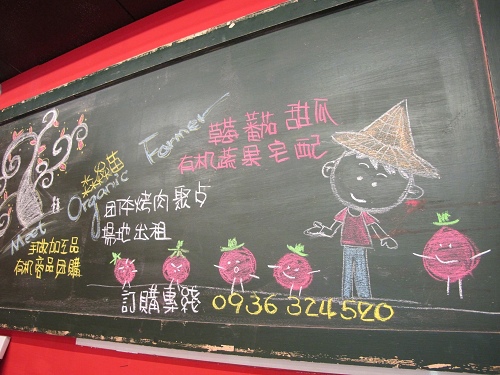 Meet Organic Farmer
森綠苗
草莓 蕃茄 甜瓜
有机蔬果宅配
团体烤肉聚点
場地出租
有机商品团購
訂購專綫 0936 324520